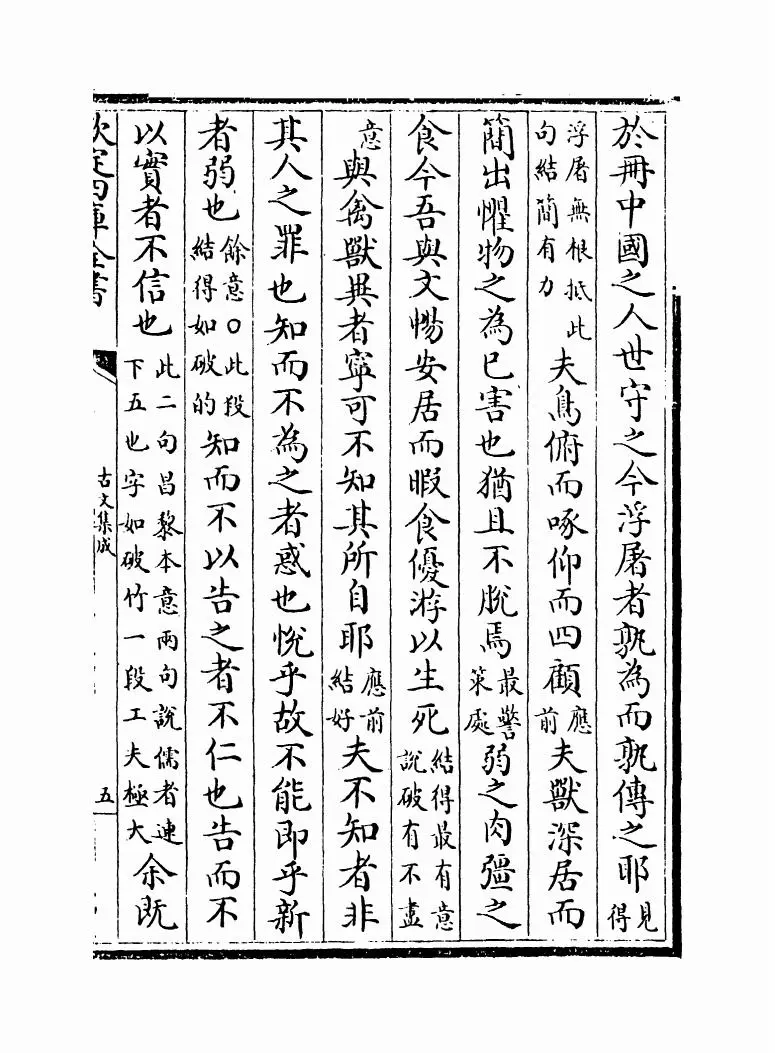 於冊中國之人世守之今浮屠者孰為而孰傳之耶見得
浮屠無根抵此句結簡有力夫鳥俯而啄仰而四顧應前夫獸深居而
簡出懼物之為已害也猶且不脫焉最警策處弱之肉彊之
食今吾與文暢安居而暇食優游以生死結得最有意說破有不盡
意與禽獸異者寧可不知其所自耶應前結好夫不知者非
其人之罪也知而不為之者惑也悅乎故不能即乎新
者弱也餘意○此段結得如破的知而不以告之者不仁也告而不
以實者不信也此二句昌黎本意兩句說儒者連下五也字如破竹一段工夫極大余既
欽定四庫全書
古文集成
五